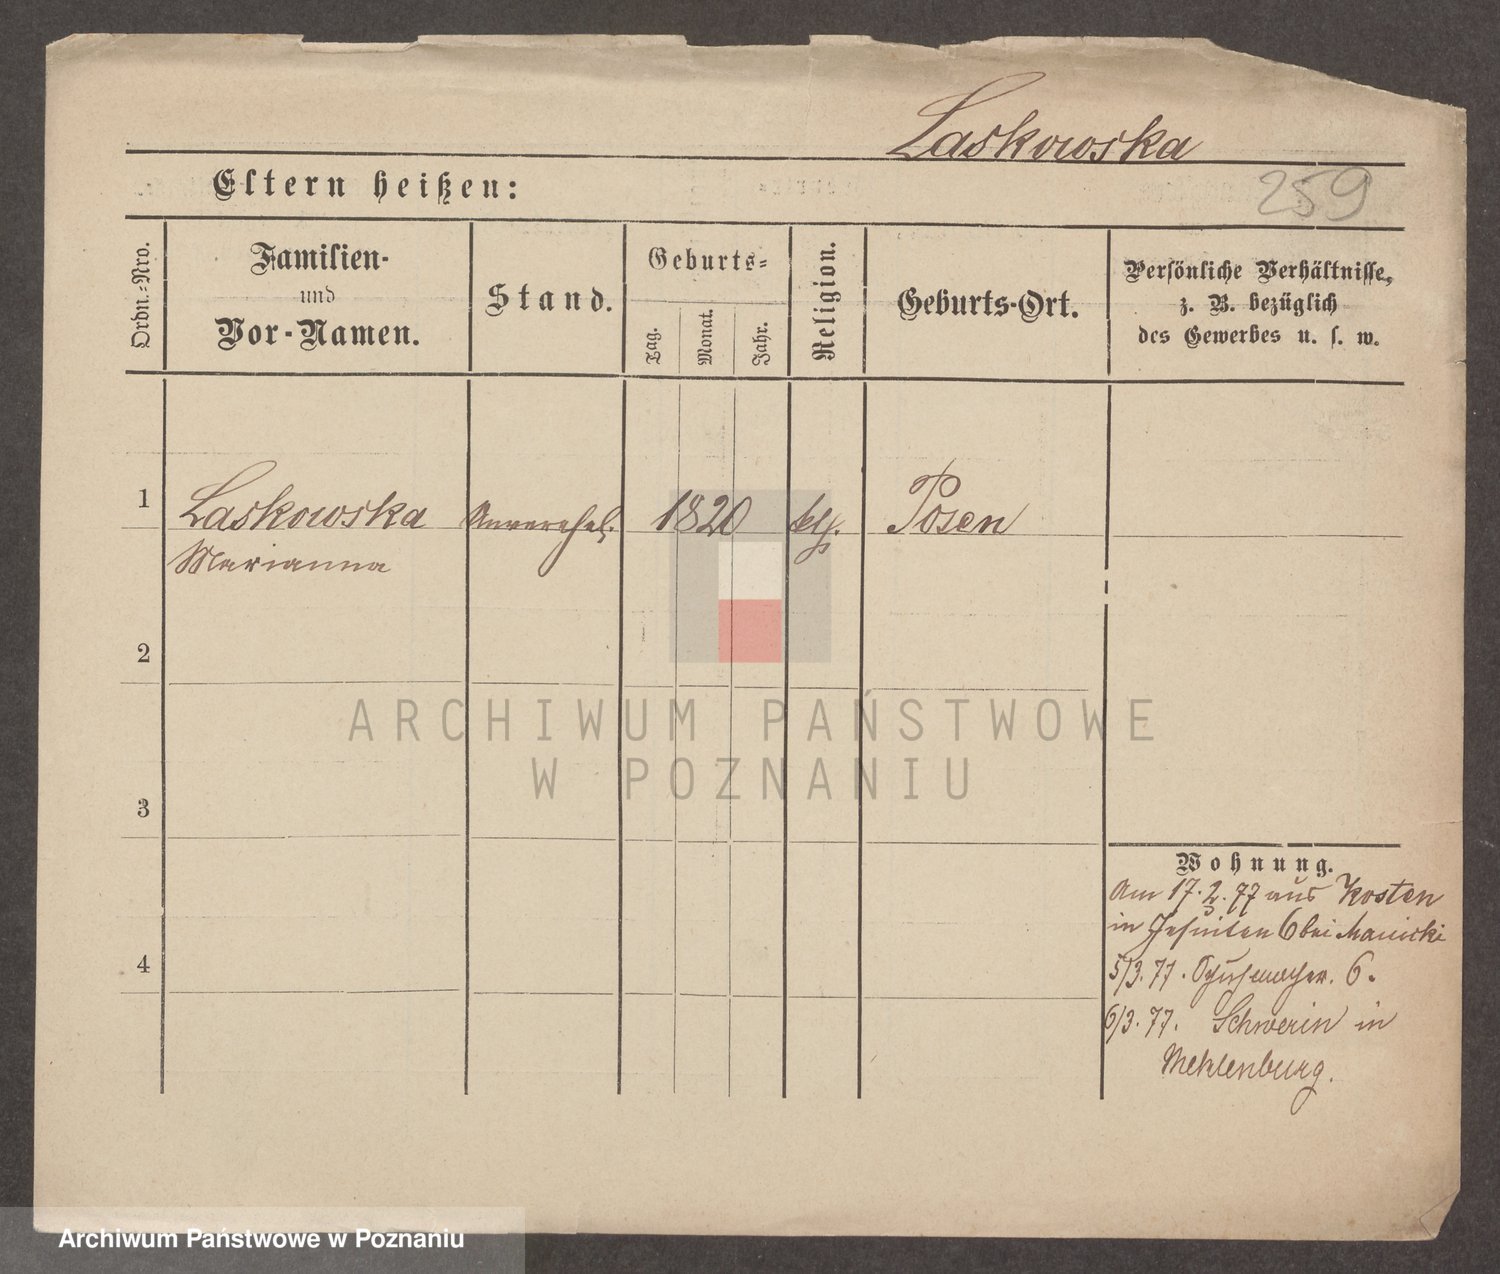 Laskowska
259
Eltern heißen:
Ordn.-Nro.
Familien-
und
Vor-Namen.
Stand.
Geburts-
Tag.
Monat.
Jahr.
Religion.
Geburts-Ort.
Persönliche Verhältnisse,
z. B. bezüglich
des Gewerbes u. s. w.
1
Laskowska
Marianna
unverehel.
1820
kth.
Posen
2
3
4
Wohnung.
Am 17.2.77 aus Kosten
in Jesuiten 6 bei
5/3.77. Schuhmacher. 6.
6/3.77. Schwerin in
Meklenburg.
ARCHIWUM PAŃSTWOWE
W POZNANIU
Archiwum Państwowe w Poznaniu